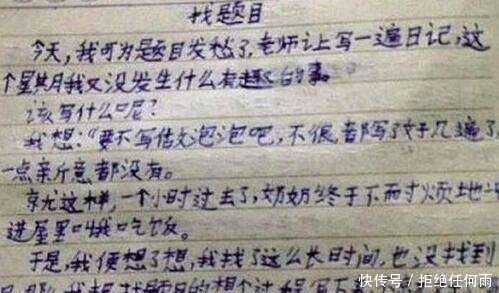 找题目
今天,我可为题目发愁了,老师让写一遍日记,这
个星期我又没发生什么有趣的事。
该写什么呢?
我想:“要不写信文泡泡吧,不很都写好几遍了
一点新意都没有。
就这样,一个小时过去了,奶奶终于不耐烦地
进屋里哦吃饭。
于是,我便想了想,我找了这么长时间,也没找到
我想找题目的想个过
快传号 / 拒绝任何雨